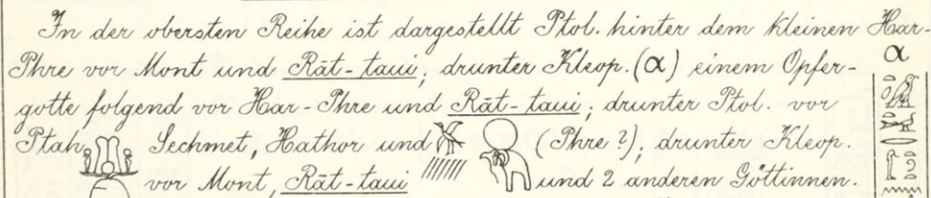 In der obersten Reihe ist dargestellt Ptol. hinter dem kleinen Har-
Phre vor Mont und Rāt-taui; drunter Kleop. (α) einem Opfer-
gotte folgend vor Har-Phre und Rāt-taui; drunter Ptol. vor
Ptah, Sechmet, Hathor und (Phre?); drunter Kleop.
vor Mont, Rāt-taui und 2 anderen Göttinnen.
α